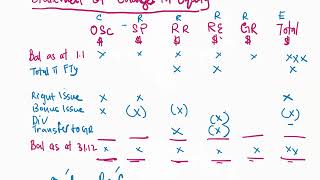 Statement of Changes in Equity
C R R R R E
OSC SP RR RE GR Total
$ $ $ $ $ $
Bal as at 1.1 x x x x x xxx
Total π FTY x x
Right Issue x x
Bonus Issue x (x) (x) (x)
Div (x) (x)
Transfer to GR x (x)
Bal as at 31.12 x x x x x xx